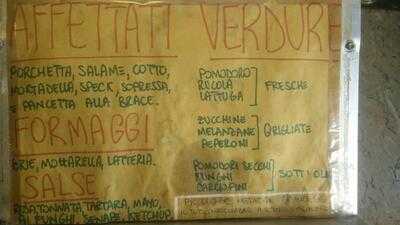 AFFETTATI
PORCHETTA, SALAME, COTTO,
MORTADELLA, SPECK, SOPRESSA,
E PANCETTA ALLA BRACE.
FORMAGGI
BRIE, MOZZARELLA, LATTERIA.
SALSE
ROSA, TONNATA, TARTARA, MAYO,
AI FUNGHI, SENAPE, KETCHUP,
VERDURE
POMODORO
RUCOLA
LATTUGA
FRESCHE
ZUCCHINE
MELANZANE
PEPERONI
GRIGLIATE
POMODORI SECCHI
FUNGHI
CARCIOFINI
SOTT'OLIO